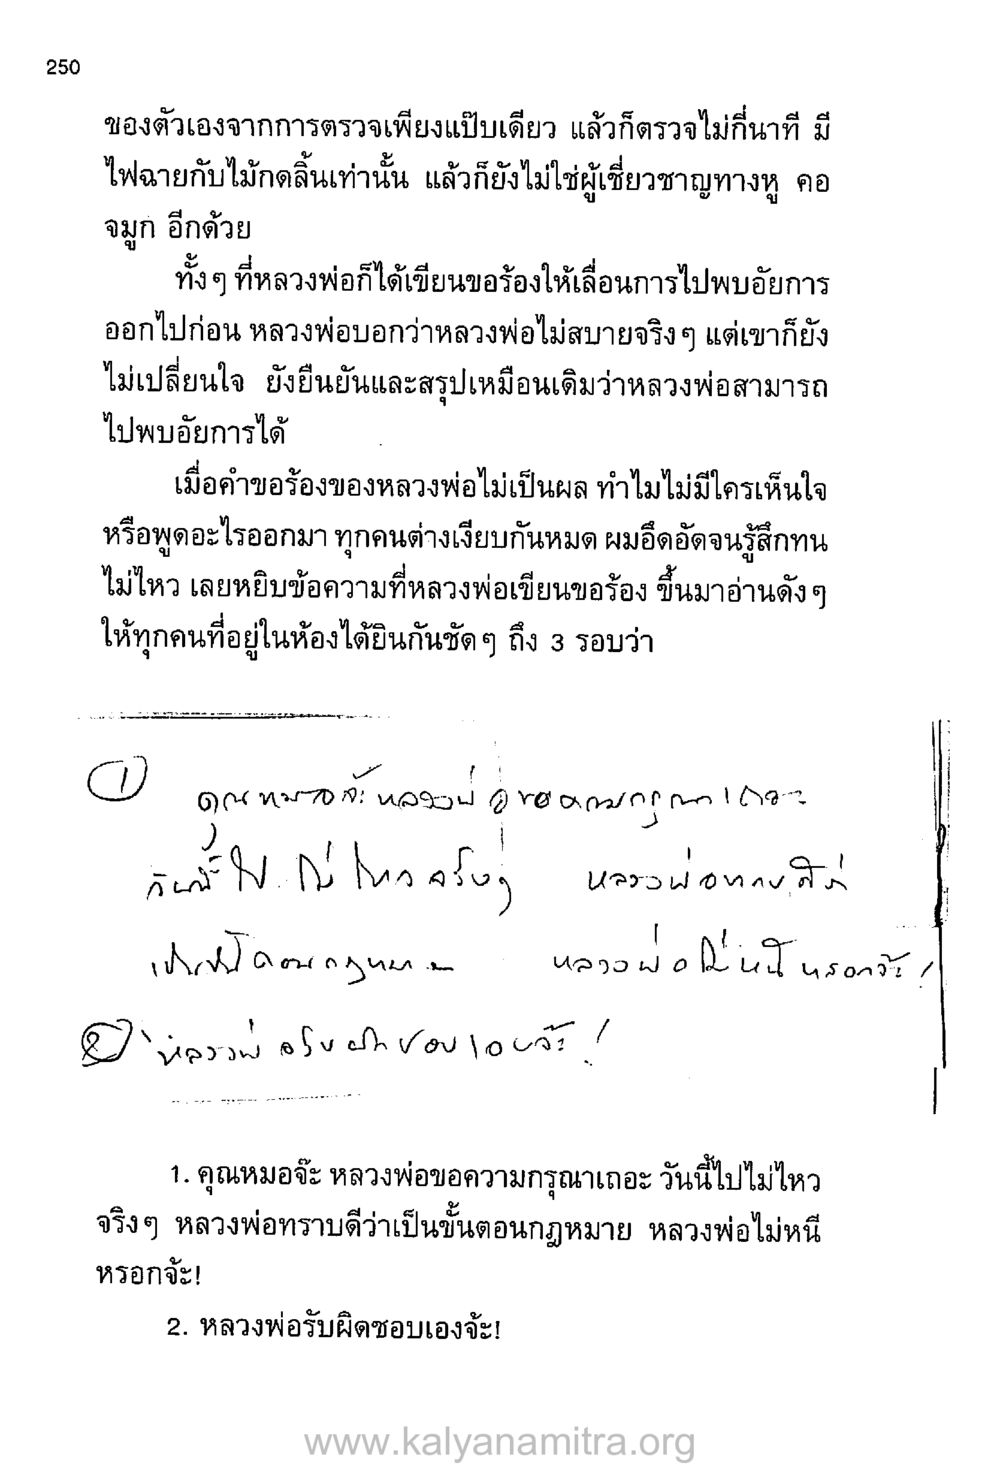 250
ของตัวเองจากการตรวจเพียงแป๊บเดียว แล้วก็ตรวจไม่กี่นาที มี
ไฟฉายกับไม้กดลิ้นเท่านั้น แล้วก็ยังไม่ใช่ผู้เชี่ยวชาญทางหู คอ
จมูก อีกด้วย
ทั้งๆ ที่หลวงพ่อก็ได้เขียนขอร้องให้เลื่อนการไปพบอัยการ
ออกไปก่อน หลวงพ่อบอกว่าหลวงพ่อไม่สบายจริงๆ แต่เขาก็ยัง
ไม่เปลี่ยนใจ ยังยืนยันและสรุปเหมือนเดิมว่าหลวงพ่อสามารถ
ไปพบอัยการได้
เมื่อคำขอร้องของหลวงพ่อไม่เป็นผล ทำไมไม่มีใครเห็นใจ
หรือพูดอะไรออกมา ทุกคนต่างเงียบกันหมด ผมอึดอัดจนรู้สึกทน
ไม่ไหว เลยหยิบข้อความที่หลวงพ่อเขียนขอร้อง ขึ้นมาอ่านดังๆ
ให้ทุกคนที่อยู่ในห้องได้ยินกันชัดๆ ถึง 3 รอบว่า
1 คุณหมอจ๊ะ หลวงพ่อขอความกรุณาเถอะ
วันนี้ไปไม่ไหวจริงๆ หลวงพ่อทราบดีว่า
เป็นขั้นตอนกฎหมาย หลวงพ่อไม่หนีหรอกจ้ะ!
2 หลวงพ่อรับผิดชอบเองจ้ะ!
1. คุณหมอจ๊ะ หลวงพ่อขอความกรุณาเถอะ วันนี้ไปไม่ไหว
จริงๆ หลวงพ่อทราบดีว่าเป็นขั้นตอนกฎหมาย หลวงพ่อไม่หนี
หรอกจ้ะ!
2. หลวงพ่อรับผิดชอบเองจ้ะ!
www.kalyanamitra.org